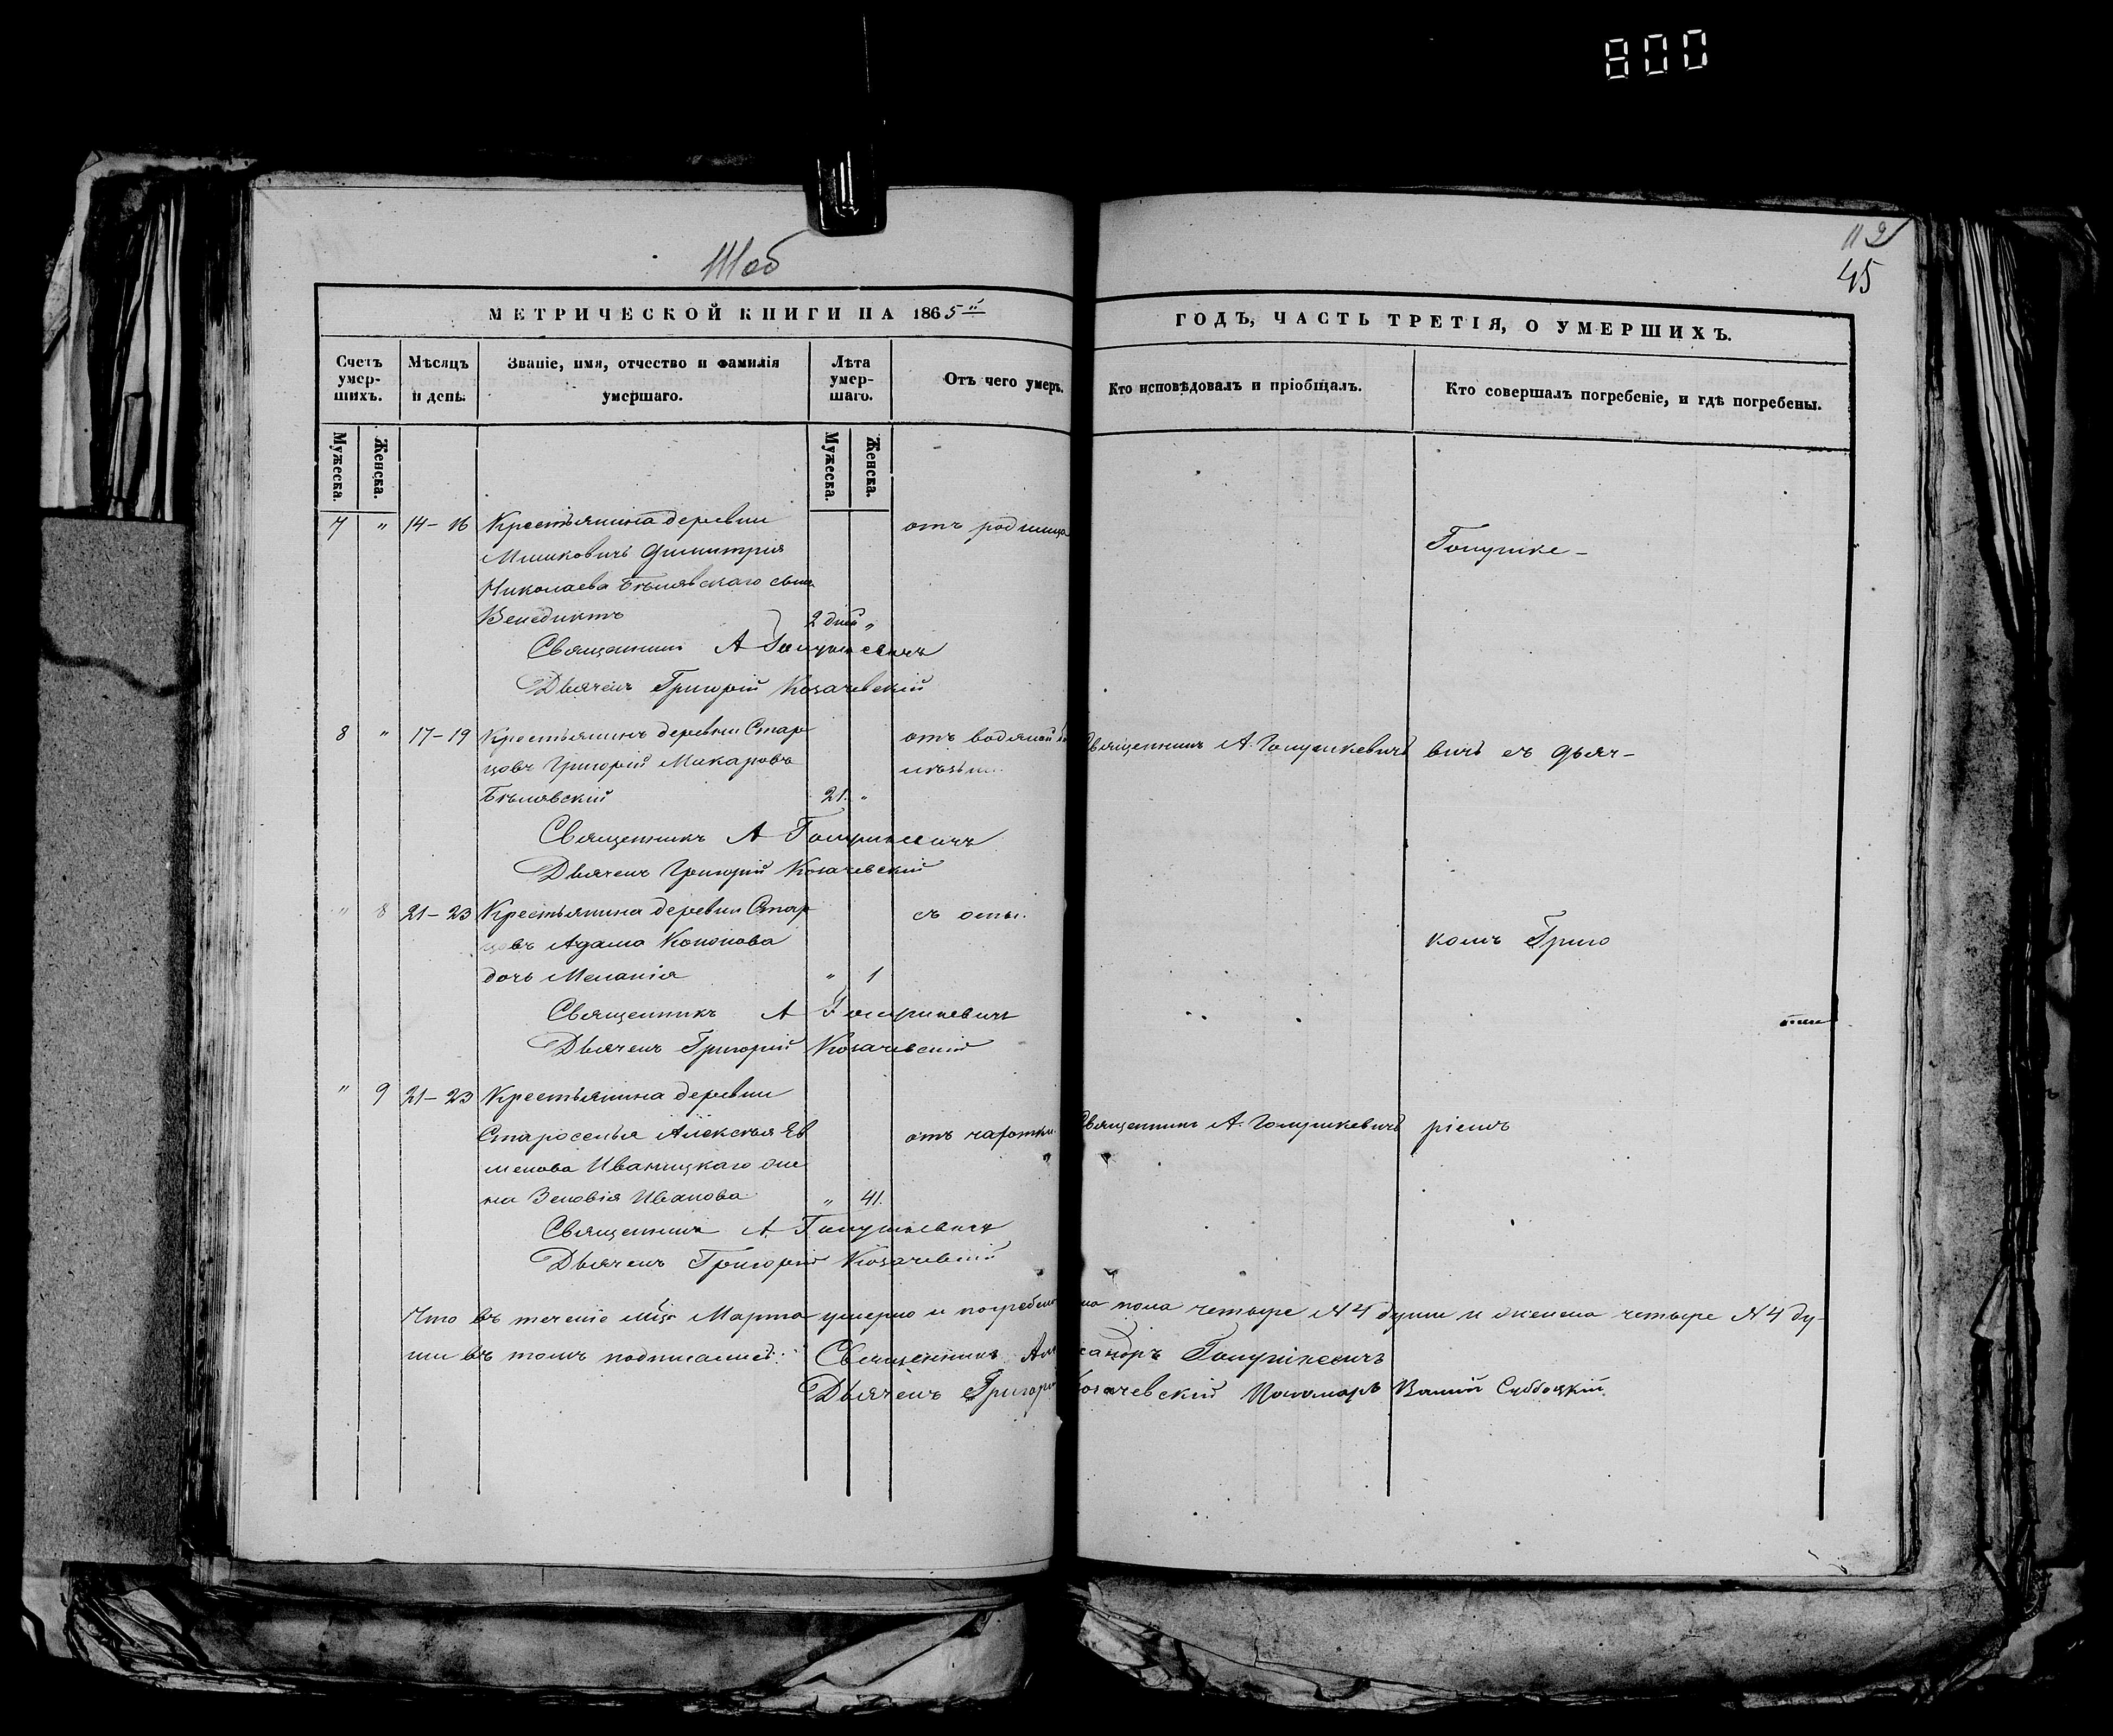 800
112
45
МЕТРИЧЕСКОЙ КНИГИ НА 1865й
ГОДЪ, ЧАСТЬ ТРЕТІЯ, О УМЕРШИХЪ.
Счетъ умер-шихъ.
Мѣсяцъ и день.
Званіе, имя, отчество и фамилія умершаго.
Лѣта умер-шаго.
Отъ чего умеръ.
Кто исповѣдовалъ и пріобщалъ.
Кто совершалъ погребеніе, и гдѣ погребены.
Мужеска.
Женска.
Мужеска.
Женска.
7 " 14-16 Крестьянина деревни
Мишковичъ Димитрія
Николаева Бѣлявскаго сынъ
Венедиктъ 2 дней "
отъ родимца
Священникъ А Голушкевичъ
Дьячекъ Григорій Козачевскій
8 " 17-19 Крестьянинъ деревни Стар
цовъ Григорій Макаровъ
Бѣлявскій 21. "
отъ водяной бо
лѣзни.
Священникъ А. Голушкевичъ
Священникъ А Голушкевичъ
Дьячекъ Григорій Козачевскій
" 8 21-23 Крестьянина деревни Стар
цовъ Адама Кононова
дочь Меланія " 1
съ оспы.
Священникъ А Голушкевичъ
Дьячекъ Григорій Козачевскій
" 9 21-23 Крестьянина деревни
Староселья Алексѣя Ев
менова Иваницкаго же
на Зеновія Иванова " 41.
отъ чахотки.
Священникъ А. Голушкевичъ
Священникъ А. Голушкевичъ
Дьячекъ Григорій Козачевскій
Голушке-
вичъ съ дьяч-
комъ Григо
ріемъ
Что въ теченіе Мѣся Марта умерло и погребено
на пола четыре № 4 души и женска четыре № 4 ду-
ши въ томъ подписались: Священникъ Александръ Голушкевичъ
Дьячекъ Григорій Козачевскій Пономарь Субботскій.